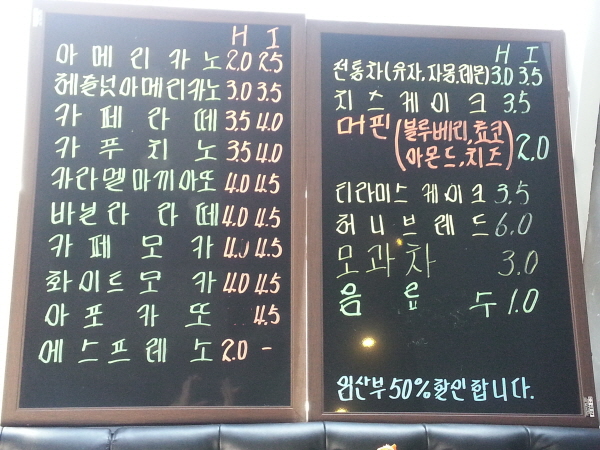 H I
아메리카노 2.0 2.5
헤즐넛아메리카노 3.0 3.5
카페라떼 3.5 4.0
카푸치노 3.5 4.0
카라멜마끼아또 4.0 4.5
바닐라라떼 4.0 4.5
카페모카 4.0 4.5
화이트모카 4.0 4.5
아포카또 4.5
에스프레노 2.0 -
H I
전통차(유자,자몽,레몬) 3.0 3.5
치즈케이크 3.5
머핀(블루베리,쵸코
아몬드,치즈) 2.0
티라미스케이크 3.5
허니브레드 6.0
모과차 3.0
음료수 1.0
임산부 50% 할인합니다.